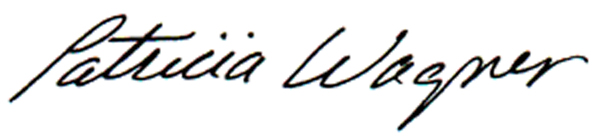 Patricia Wagner